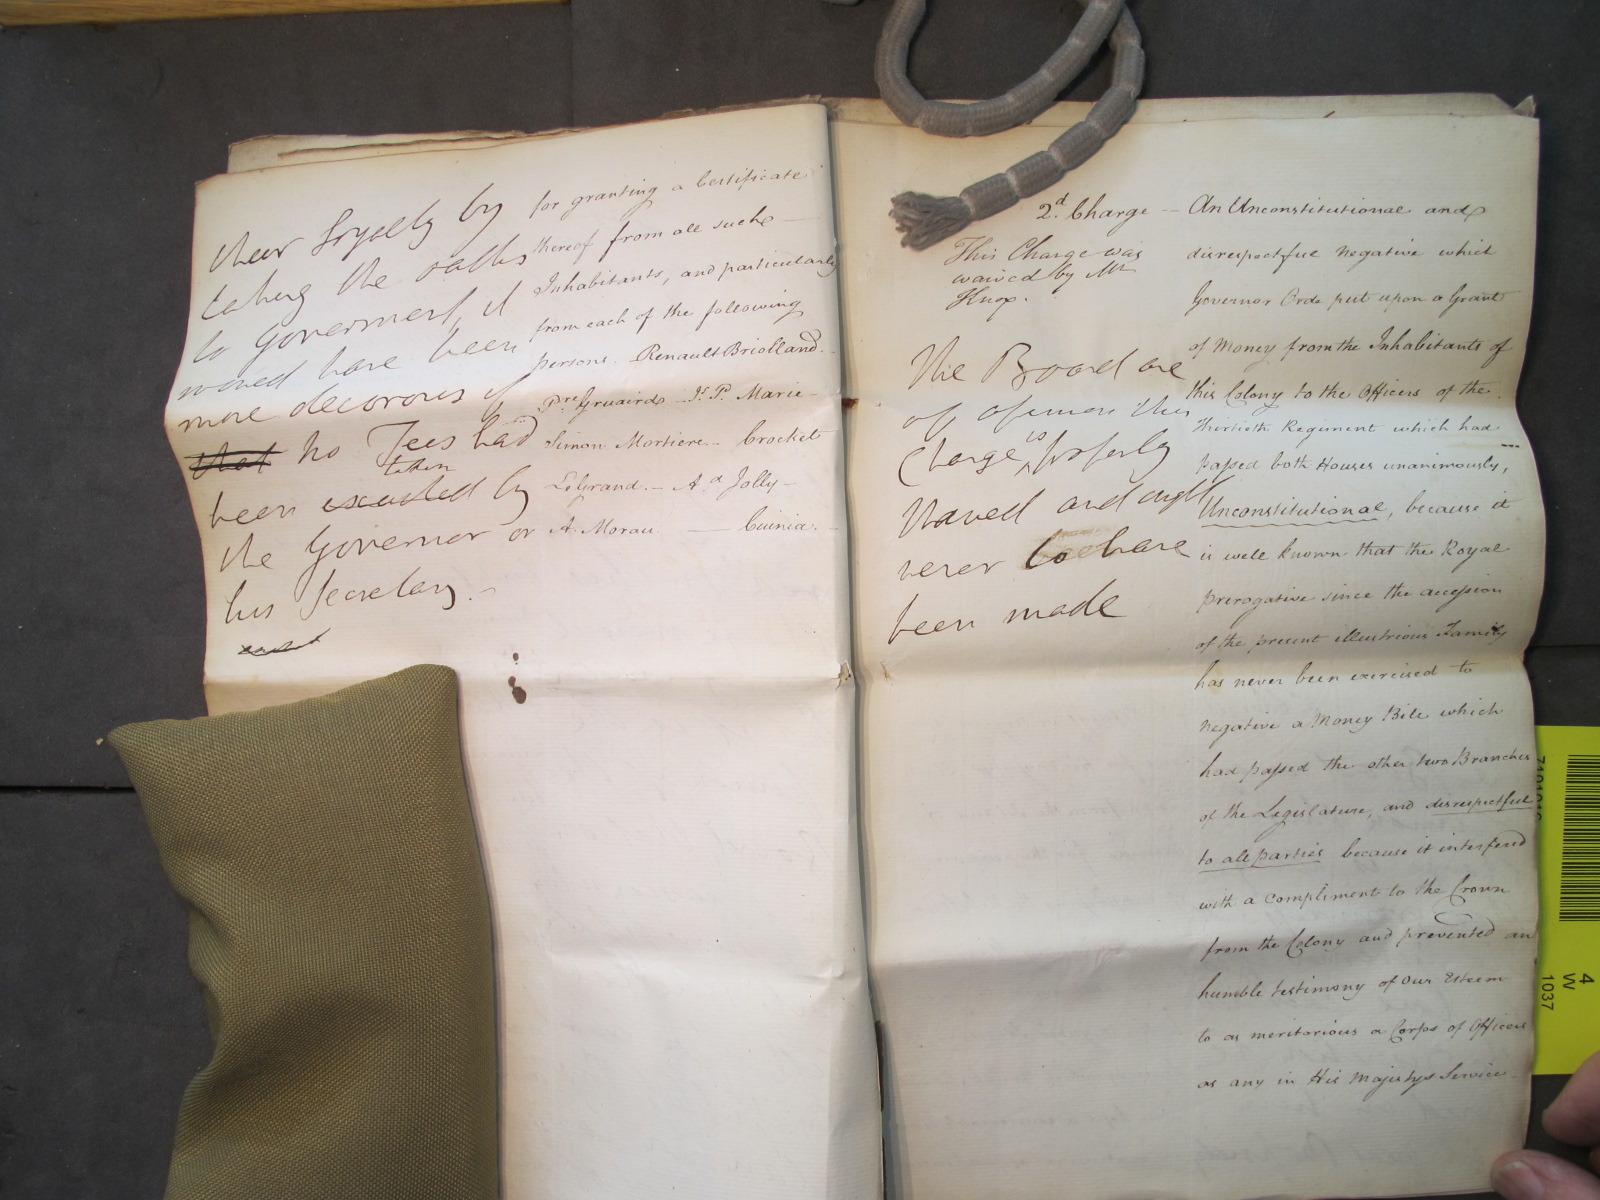 their Loyalty by
taking the oaths
to Government, it
would have been
more decorous if
that no Fees had
taken
been exacted by
the Governor or
his Secretary. -
for granting a Certificate
thereof from all such
Inhabitants, and particularly
from each of the following
persons. Renault Briolland.
Pre. Gruaird - Js. P. Marie -
Simon Mortiere - Crocket
LeGrand. - Ad. Jolly -
A. Morau. - Cuinia. -
2d. Charge -
This Charge was
waived by Mr
Knox.
The Board are
of opinion this
Charge is properly
Waved and ought
never to have
been made
An Unconstitutional and
disrespectful negative which
Governor Orde put upon a Grant
of Money from the Inhabitants of
this Colony to the Officers of the
thirtieth Regiment which had
passed both Houses unanimously,
Unconstitutional, because it
is well known that the Royal
prerogative since the accession
of the present illustrious Family
has never been exercised to
negative a Money Bill which
had passed the other two Branches
of the Legislature, and disrespectful
to all parties because it interfered
with a compliment to the Crown
from the Colony and prevented an
humble testimony of our Esteem
to as meritorious a Corps of Officers
as any in His Majestys Service
4
W
1037